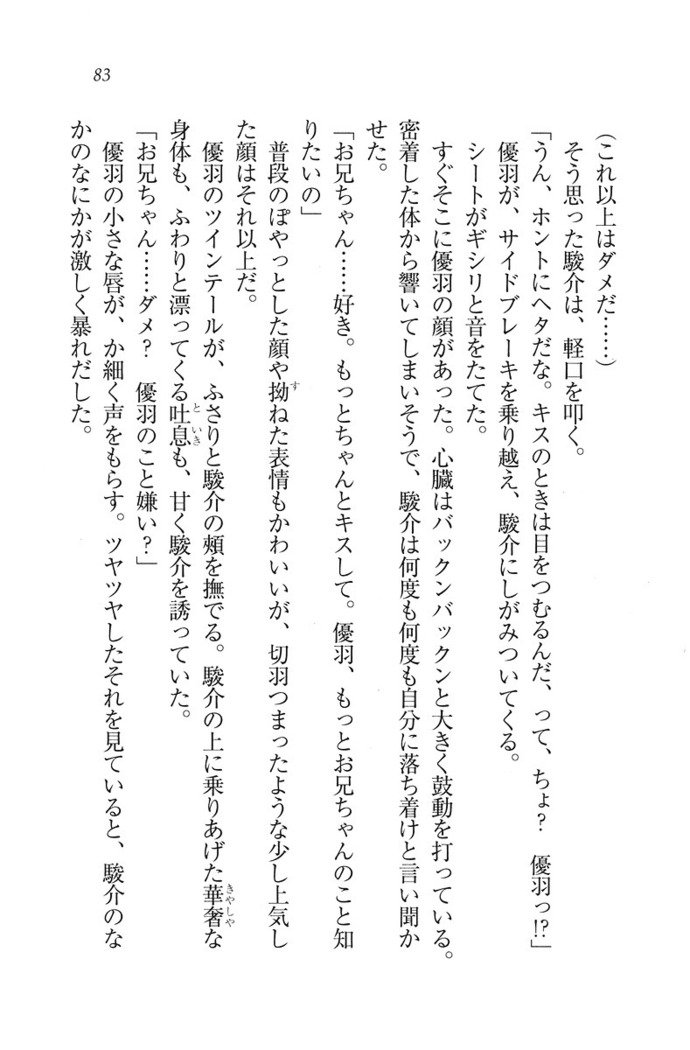 83
（これ以上はダメだ……）
そう思った駿介は、軽口を叩く。
「うん、ホントにヘタだな。キスのときは目をつむるんだ、って、ちょ？　優羽っ!?」
優羽が、サイドブレーキを乗り越え、駿介にしがみついてくる。
シートがギシリと音をたてた。
すぐそこに優羽の顔があった。心臓はバックンバックンと大きく鼓動を打っている。
密着した体から響いてしまいそうで、駿介は何度も何度も自分に落ち着けと言い聞か
せた。
「お兄ちゃん……好き。もっとちゃんとキスして。優羽、もっとお兄ちゃんのこと知
りたいの」
普段のぽやっとした顔や拗ねた表情もかわいいが、切羽つまったような少し上気し
た顔はそれ以上だ。
優羽のツインテールが、ふさりと駿介の頰を撫でる。駿介の上に乗りあげた華奢な
身体も、ふわりと漂ってくる吐息も、甘く駿介を誘っていた。
「お兄ちゃん……ダメ？　優羽のこと嫌い？」
優羽の小さな唇が、か細く声をもらす。ツヤツヤしたそれを見ていると、駿介のな
かのなにかが激しく暴れだした。